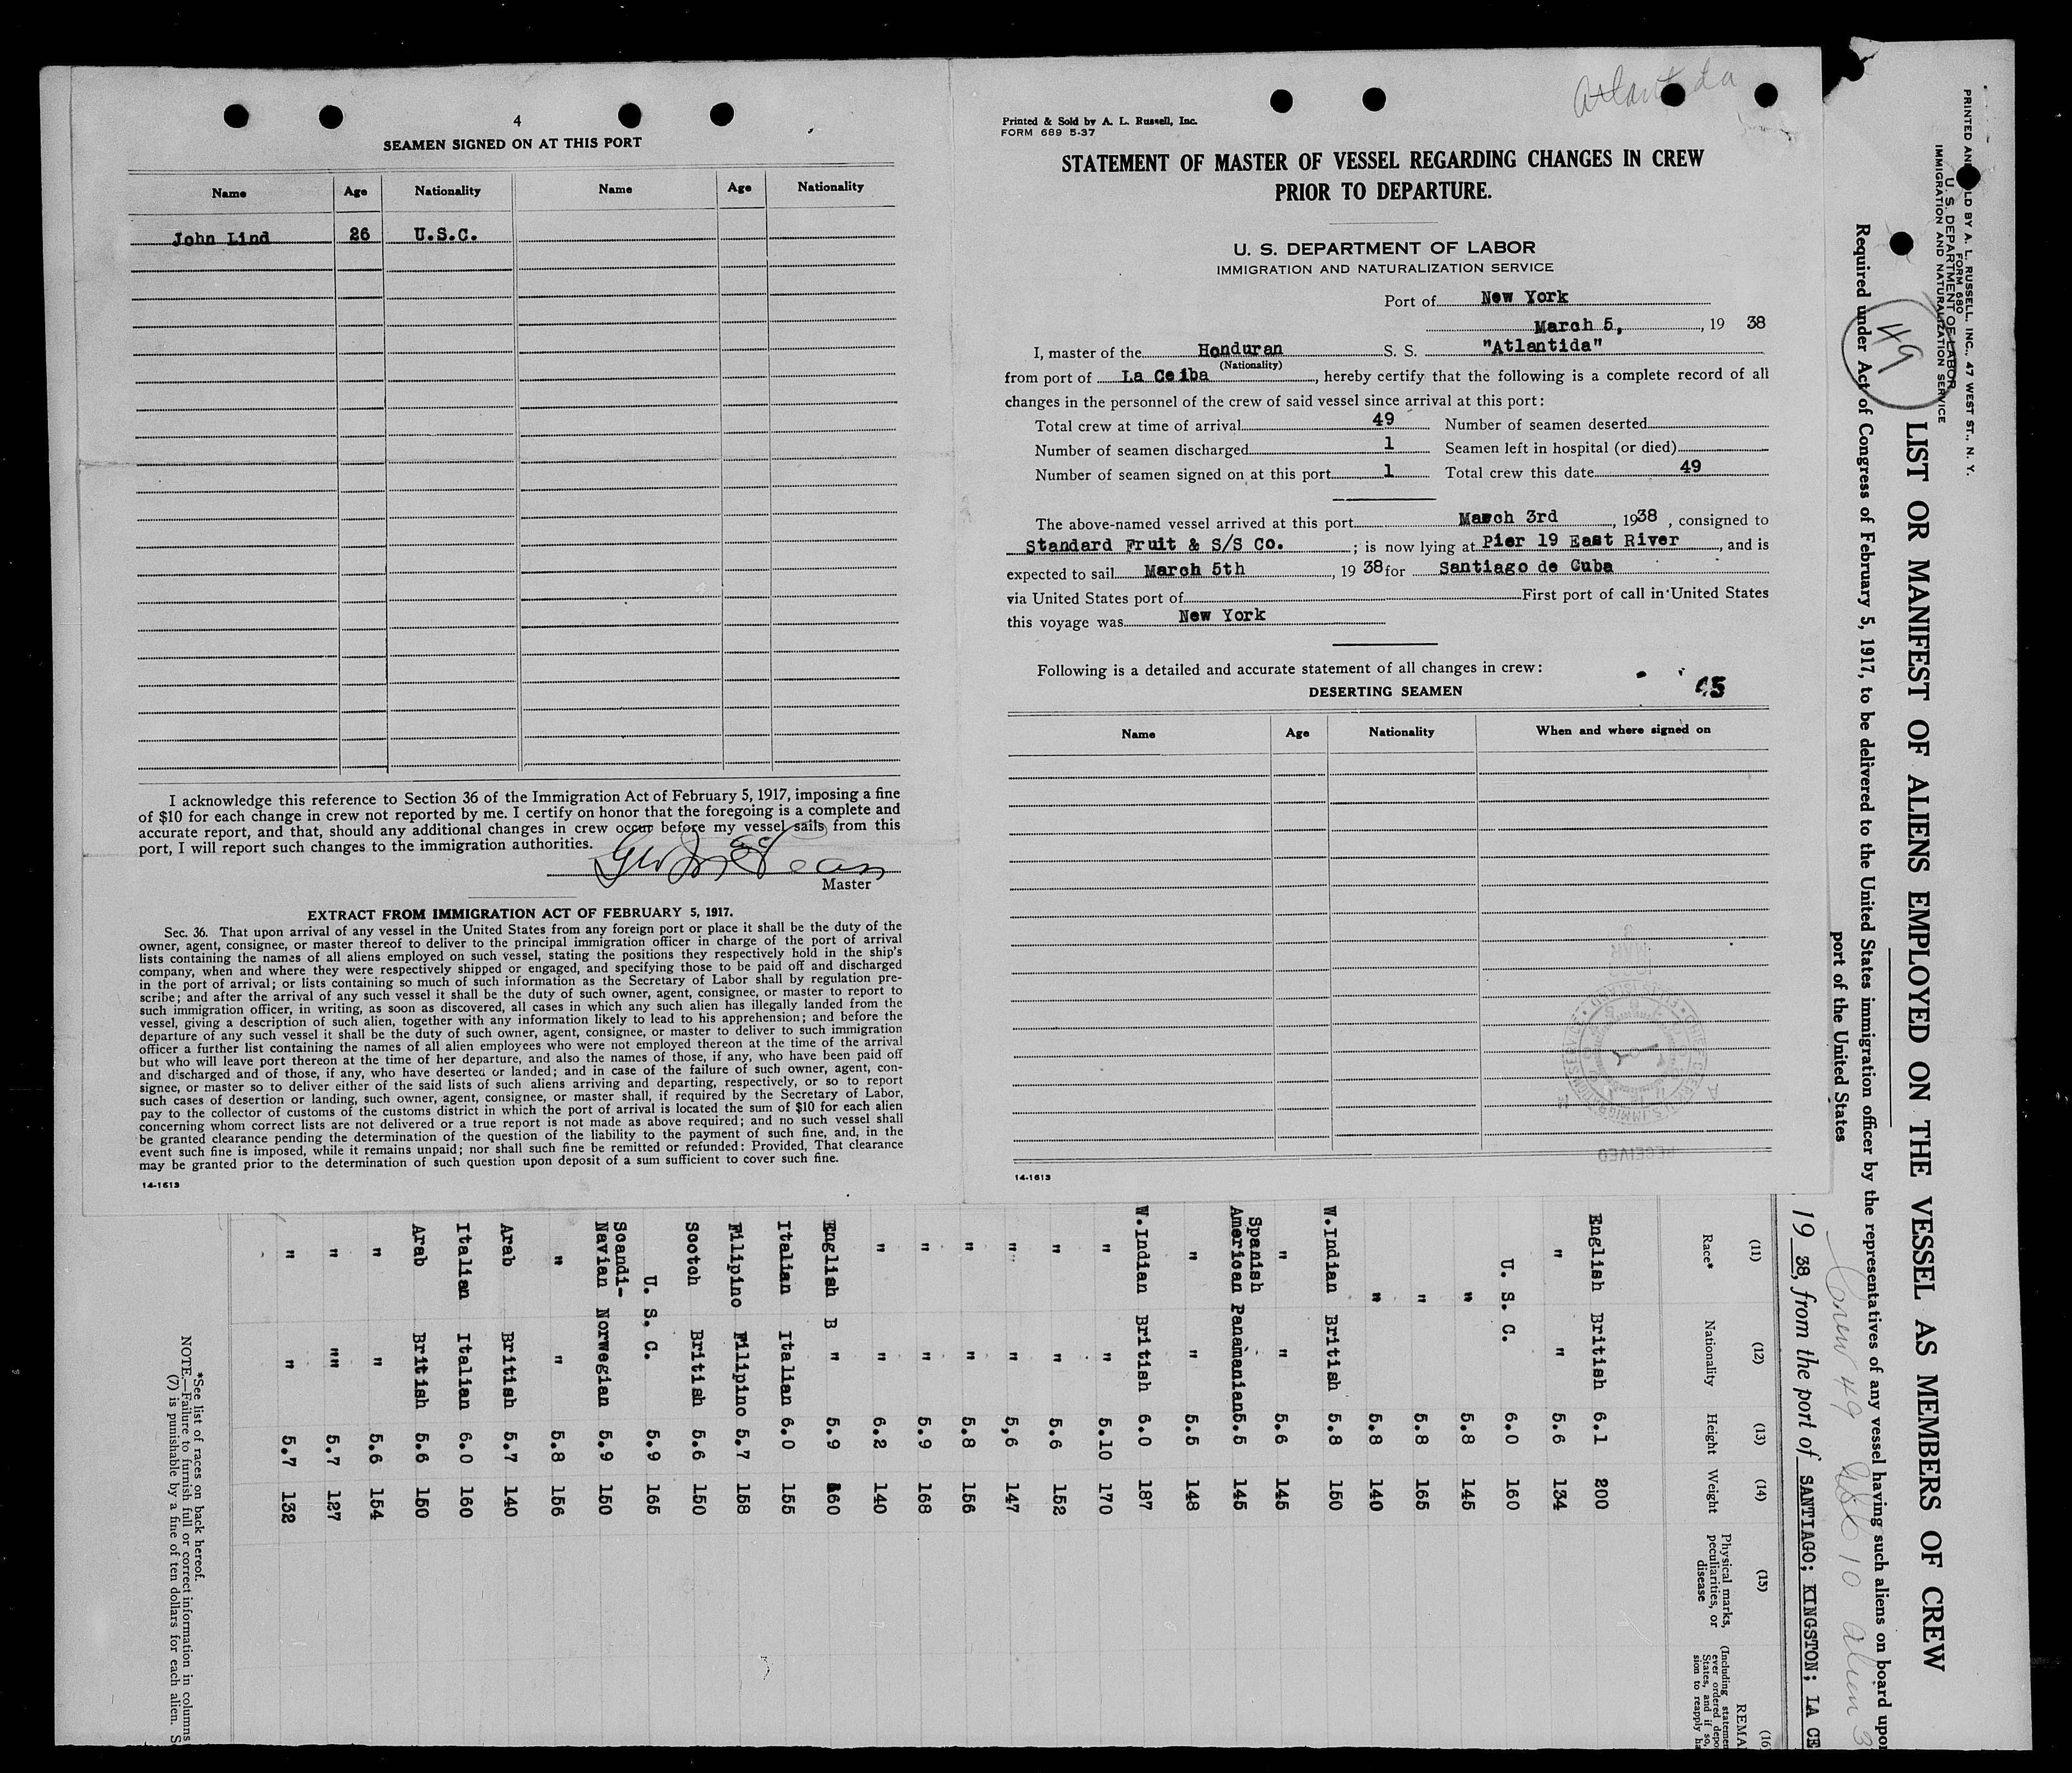 4
SEAMEN SIGNED ON AT THIS PORT
Name Age Nationality Name Age Nationality
John Lind 26 U.S.C.
I acknowledge this reference to Section 36 of the Immigration Act of February 5, 1917, imposing a fine
of $10 for each change in crew not reported by me. I certify on honor that the foregoing is a complete and
accurate report, and that, should any additional changes in crew occur before my vessel sails from this
port, I will report such changes to the immigration authorities.
Master
EXTRACT FROM IMMIGRATION ACT OF FEBRUARY 5, 1917.
Sec. 36. That upon arrival of any vessel in the United States from any foreign port or place it shall be the duty of the
owner, agent, consignee, or master thereof to deliver to the principal immigration officer in charge of the port of arrival
lists containing the names of all aliens employed on such vessel, stating the positions they respectively hold in the ship's
company, when and where they were respectively shipped or engaged, and specifying those to be paid off and discharged
in the port of arrival; or lists containing so much of such information as the Secretary of Labor shall by regulation pre-
scribe; and after the arrival of any such vessel it shall be the duty of such owner, agent, consignee, or master to report to
such immigration officer, in writing, as soon as discovered, all cases in which any such alien has illegally landed from the
vessel, giving a description of such alien, together with any information likely to lead to his apprehension; and before the
departure of any such vessel it shall be the duty of such owner, agent, consignee, or master to deliver to such immigration
officer a further list containing the names of all alien employees who were not employed thereon at the time of the arrival
but who will leave port thereon at the time of her departure, and also the names of those, if any, who have been paid off
and discharged and of those, if any, who have deserted or landed; and in case of the failure of such owner, agent, con-
signee, or master so to deliver either of the said lists of such aliens arriving and departing, respectively, or so to report
such cases of desertion or landing, such owner, agent, consignee, or master shall, if required by the Secretary of Labor,
pay to the collector of customs of the customs district in which the port of arrival is located the sum of $10 for each alien
concerning whom correct lists are not delivered or a true report is not made as above required; and no such vessel shall
be granted clearance pending the determination of the question of the liability to the payment of such fine, and, in the
event such fine is imposed, while it remains unpaid; nor shall such fine be remitted or refunded: Provided, That clearance
may be granted prior to the determination of such question upon deposit of a sum sufficient to cover such fine.
14-1613
Atlantida
Printed & Sold by A. L. Russell, Inc.
FORM 689 5-37
STATEMENT OF MASTER OF VESSEL REGARDING CHANGES IN CREW
PRIOR TO DEPARTURE.
U. S. DEPARTMENT OF LABOR
IMMIGRATION AND NATURALIZATION SERVICE
Port of New York
March 5, , 19 38
I, master of the Honduran S. S. "Atlantida"
(Nationality)
from port of La Ceiba , hereby certify that the following is a complete record of all
changes in the personnel of the crew of said vessel since arrival at this port:
Total crew at time of arrival 49 Number of seamen deserted
Number of seamen discharged 1 Seamen left in hospital (or died)
Number of seamen signed on at this port 1 Total crew this date 49
The above-named vessel arrived at this port March 3rd , 1938 , consigned to
Standard Fruit & S/S Co. ; is now lying at Pier 19 East River , and is
expected to sail March 5th , 19 38 for Santiago de Cuba
via United States port of First port of call in United States
this voyage was New York
Following is a detailed and accurate statement of all changes in crew:
DESERTING SEAMEN
Name Age Nationality When and where signed on
RECEIVED
14-1613
PRINTED AND SOLD BY A. L. RUSSELL, INC., 47 WEST ST., N. Y.
FORM 680
U. S. DEPARTMENT OF LABOR
IMMIGRATION AND NATURALIZATION SERVICE
49
LIST OR MANIFEST OF ALIENS EMPLOYED ON THE VESSEL AS MEMBERS OF CREW
Required under Act of Congress of February 5, 1917, to be delivered to the United States immigration officer by the representatives of any vessel having such aliens on board upon
port of the United States
Crew 49 USC 10 alien 3
19 38, from the port of SANTIAGO; KINGSTON; LA CE
(11) (12) (13) (14) (15) (16)
Race* Nationality Height Weight Physical marks, peculiarities, or disease REMA
English British 6.1 200
" " 5.6 134
U. S. C. 6.0 160
" 5.8 145
" 5.8 165
" 5.8 140
W.Indian British 5.8 150
" " 5.6 145
Spanish
American Panamanian 5.5 145
" " 5.5 148
W.Indian British 6.0 187
" " 5.10 170
" " 5.6 152
" " 5,6 147
" " 5.8 156
" " 5.9 168
" " 6.2 140
English B " 5.9 160
Italian Italian 6.0 155
Filipino Filipino 5.7 158
Scotch British 5.6 150
U. S. C. 5.9 165
Scandi-
Navian Norwegian 5.9 150
" " 5.8 156
Arab British 5.7 140
Italian Italian 6.0 160
Arab British 5.6 150
" " 5.6 154
" "" 5.7 127
" " 5.7 132
*See list of races on back hereof.
NOTE.—Failure to furnish full or correct information in columns
(7) is punishable by a fine of ten dollars for each alien. S